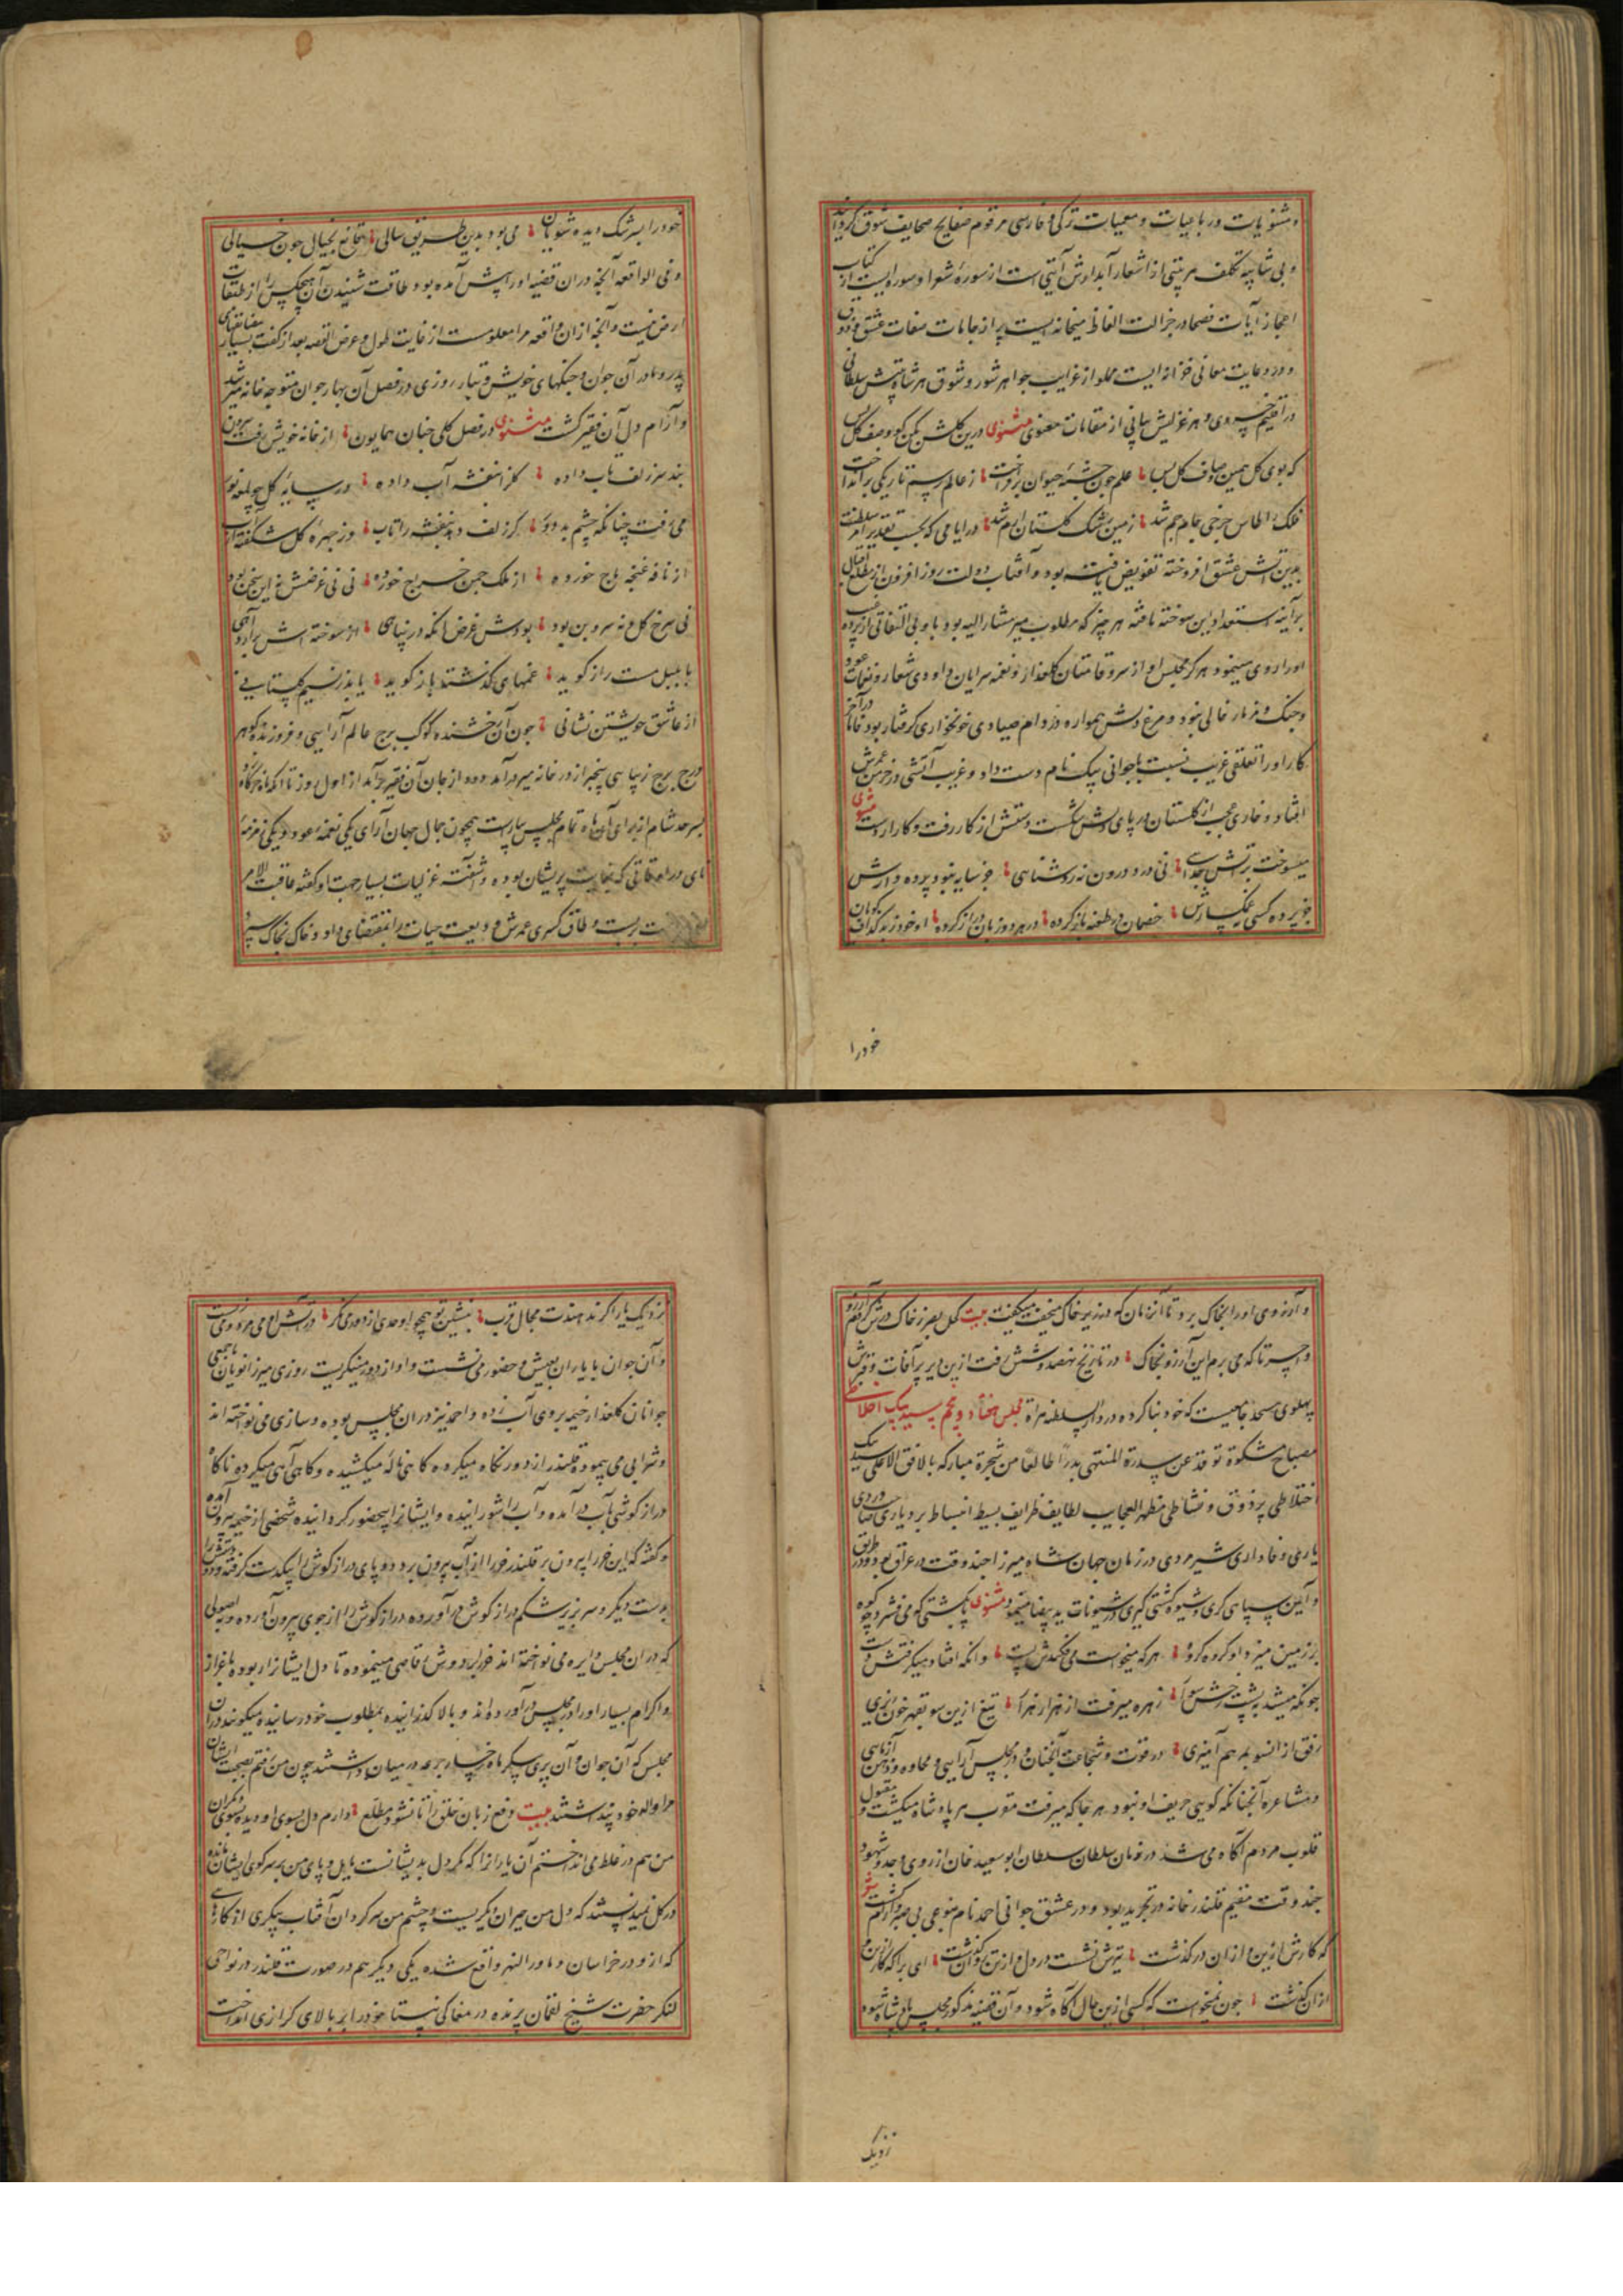 و مثنویات و رباعیات و معمیات ترکی و فارسی مرقوم صفایح صحایف شوق گردانید
و بی شایبه تکلف هر بیتی از اشعار آبدارش آیتی است از سوره شعرا و سوره ایست از کتاب
اعجاز آیات فصحا و در جزالت الفاظ میخانه ایست پر از جامات صفات عشق و ذوق
و در رعایت معانی خزانه ایست مملو از غرایب جواهر شور و شوق هر شاه بیتش سلطانی
در اقلیم خسروی و هر غزلش بیانی از مقامات معنوی مثنوی درین گلشن مکن گو وصف گل بس
که بوی گل همین وصاف گل بس علم چون چشمه حیوان برافراخت ز عالم رسم تاریکی برانداخت
فلک را طاس چرخی جام جم شد زمین رشک گلستان ارم شد در ایامی که بحسب تقدیر امر سلطنت
بدین آتش عشق افروخته تفویض یافته بود و آفتاب دولت روز افزون از مطلع اقبال
بر آینه استعداد این سوخته تافته هر چیز که مطلوب میر مشار الیه بود با وی التفاتی از پرده غیب
او را روی مینمود و هرگز مجلس او از سرو قامتان گلعذار و نغمه سرایان داودی شعار و نغمات عود
و چنگ و مزمار خالی نبود و مرغ دلش همواره در دام صیادی خونخواری گرفتار بود قانا در آخر
کار او را تعلقی غریب نسبت با جوانی بیک نام دست داد و غریب آتشی در خرمن عمرش
افتاد و خاری عجب از گلستان در پای دلش شکست و دستش از کار رفت و کار از دست مثنوی
میسوخت بر آتش جدایی نی در درون نه روشنایی جز سایه نبود پرده دارش
جز پرده کسی نه غمگسارش خصمان در طعنه باز کرده در هر دو زبان دراز کرده او خود ز بد گزاف گویان
خودرا
خود را بسرشک دیده شویان می بود بدین طریق سالی قانع بخیالی چون خیالی
و فی الواقعه آنچه در آن قضیه او را پیش آمده بود طاقت شنیدن آن هیچکس را از طبقات
ارض نیست و آنچه از ان واقعه مرا معلومست از غایت طول و عرض القصه بعد از گفت بسیار
پدر و مادر آن جوان و جنگهای خویش و تبار روزی در فصل آن بهار جوان متوجه خانه میر شد
و آرام دل آن فقیر گشت مثنوی در فصل گلی چنان همایون از خانه خویش رفت بیرون
بند سر زلف تاب داده گلرا ز بنفشه آب داده در سایه گل چو پلو نور
می رفت چنانکه چشم بد دور گر زلف دهد بنفشه را تاب وز چهره گل شکفته را آب
از نافه غنچه باج خورده از ملک چمن خراج خورده نی نی غرضش نه این سخن بود
نی سرخ گل و نه سرو بن بود بودش غرض آنکه در پناهی از سوخته اش برآرد آهی
با بلبل مست راز گوید غمهای گذشته باز گوید یابد ز نسیم گلستانی
از عاشق خویشتن نشانی چون آن رخشنده کوکب برج عالم آرایی و فروزنده گوهر
درج برج زیبایی بیخبر از در خانه میر درآمد دود از جان آن فقیر برآمد از اول روز تا آنکه ماه خرگاه
بسرحد شام از برای آن ماه تمام مجلسی بیاراست همچون جمال جهان آرای یکی نغمه عود و یکی زمزمه
نای در اوقاتی که بغایت پریشان بوده و آشفته غزلیات بسیار جهت او گفته عاقبت الامر
بربست و طاق کسری عمرش و ودیعت حیات را بمقتضای داد و خاک بخاک سپرد
و آرزوی او را بخاک برد تا آن زمان که در زیر خاک میخفت میگفت بیت گل بصر ز خاک درش کردم آرزو
واحسرتا که می برم این آرزو بخاک در تاریخ نهصد و شش رفت ازین دیر پر آفات و قبرش
پهلوی مسجد جامعیست که خود بنا کرده در دار السلطنه هراة مجلس هفتاد و پنجم سید بیک اختلاطی
مصباح مشکوة توقد عن سدرة المنتهی بدرا طالعا من شجرة مبارکه بالافق الاعلی سید بیک
اختلاطی پر ذوق و نشاطی مظهر العجایب لطایف ظرایف بسیط انبساط بر دیاری صاحب دردی
یاری وفاداری شیر مردی در زمان جهان شاه میرزا چند وقت در عراق بود و در طریق
و آیین سپاهی گری و شیوه کشتی گیری و شیونات ید بیضا مینمود مثنوی بکشتی گو می فشرد چو کوه
بر زمین میزد او کروه کروه هر که میخواست می فکندش پست وانکه افتاد میگرفتش دست
چونکه میشد به پشت رخش سوار زهره میرفت از هزار هزار تیغ ازین سو بقهر خون ریزی
رفق از آنسو بمهر آمیزی در قوت و شجاعت آنچنان و در مجلس آرایی و محاوره و ذهن آزمایی
و مشاعره آنچنانکه گویی حریف او نبود هر جا که میرفت مقرب هر پادشاه میگشت و مقبول
قلوب مردم آگاه می شد در زمان سلطان سلطان ابوسعید خان از روی وجد و شهود
چند وقت مقیم قلندر خانه و در تجرید بود و در عشق جوانی احمد نام بنوعی بی صبر و آرام گشت شعر
که کارش ازین و از ان درگذشت تیرش نشست در دل و از تن گذشت ای برا که کار ازین و
از ان گذشت چون نمیخواست که کسی ازین حال آگاه شود و آن قضیه مذکور مجلس پادشاه شود
نزدیک
نزدیک یار اگر ندهندت مجال قرب بنشین تو همچو اوحدی از دور می نگر در آتش او می مرد و می زیست
و آن جوان با یاران بعیش و حضور می نشست و او از دور مینگریست روزی میرزا نویان باجمعی
جوانان گلعذار خیمه بر روی آب زده و احمد نیز در ان مجلس بوده و سازی می نواخته اند
و شرابی می پیموده قلندر از دور نگاه میکرده گاهی ناله میکشیده و گاهی آهی میکرده ناگاه
دراز گوشی بآب درآمده و آب را شورانیده و ایشانرا بیحضور گردانیده شخصی از خیمه بیرون آمده
و گفته که این خر را بیرون بر قلندر خر را از آب بیرون برد دو پای دراز گوش را بیکدست گرفته و دو دستش را
بدست دیگر و سر بزیر شکم دراز گوش درآورده دراز گوش را از جوی بیرون آورده و باصولی
که در ان مجلس دایره می نواخته اند خر بر دوش رقاصی مینموده تا دل ایشانرا ربوده باعزاز
و اکرام بسیار او را در مجلس درآورده اند و بالا گذرانیده بمطلوب خود رسانیده میگویند در ان
مجلس که آن جوان و آن پری پیکر ماه رخسار جرعه در میان داشتند چون من رفتم بصحبت ایشان
مرا واله خود پنداشتند بیت دفع زبان خلق را تا نشود مطلع دارم دل بسوی او و دیده بسوی دیگران
من هم در غلط می انداختم آن یارانرا که مگر دل بدیشانست مایل و پای من بر سر کوی ایشان مانده
در گل نمیدانستند که دل من حیران دیگریست و چشم من سرگردان آفتاب پیکری از کارهای
که ازو در خراسان و ماوراءالنهر واقع شده یکی دیگر هم در صورت قلندر در نواحی
لنگر حضرت شیخ لقمان پرنده در مغاکی نیستا خود را بر بالای گرازی انداخت